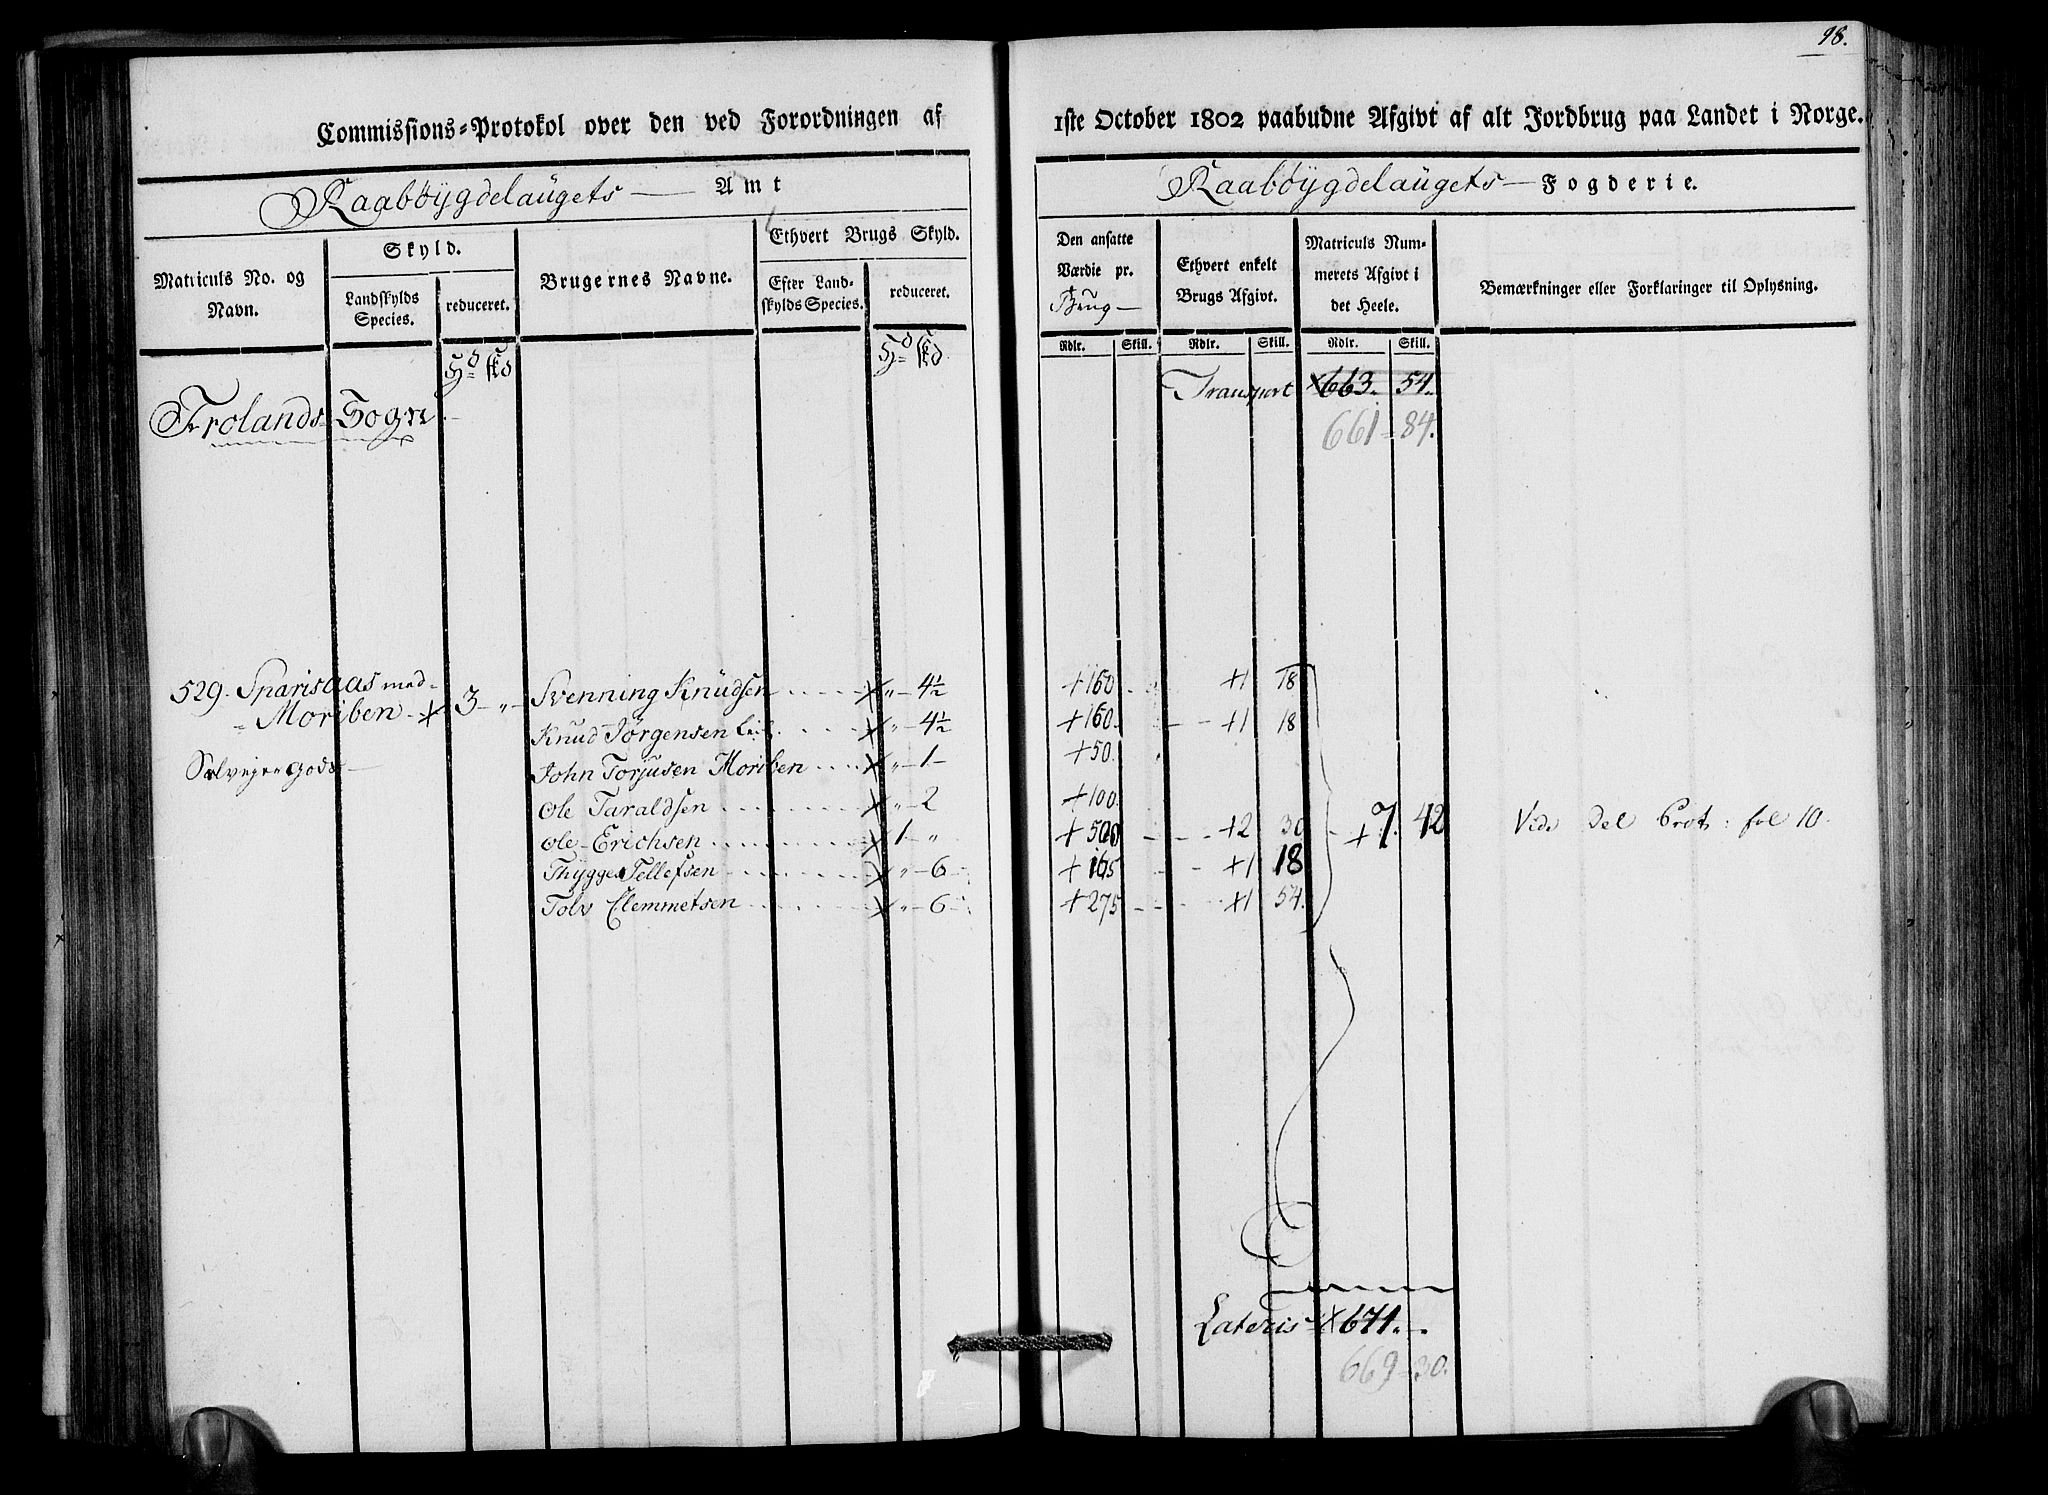 98.
Commissions-Protokol over den ved Forordningen af 1ste October 1802 paabudne Afgivt af alt Jordbrug paa Landet i Norge.
Raabøygdelaugets Amt
Raabøygdelaugets Fogderie.
Matriculs No. og Navn.
Skyld.
Landskylds Species.
reduceret.
Brugernes Navne.
Ethvert Brugs Skyld.
Efter Landskylds Species.
reduceret.
Den ansatte Værdie pr. Brug
Ethvert enkelt Brugs Afgivt.
Matriculs Nummerets Afgivt i det Heele.
Bemærkninger eller Forklaringer til Oplysning.
Rdlr. Skill. Rdlr. Skill. Rdlr. Skill.
Hd skd
Hd skd
Transport x663. 54.
661=84.
Frolands Sogn
529. Sparisaas med
= Moriben x 3 "
Selveier Gods
Svenning Knudsen x " 4½ +160 +1 18
Knud Jørgensen x " 4½ +160. +1 18
John Torjusen Moriben x " 1 +50.
Ole Taraldsen x " 2 +100.
Ole Erichsen x 1 " +500 +2 30 +7. 42 Vide Del Prot: fol 10.
Thygge Tellefsen x " 6 +165 +1 18
Tolv Clemmetsen x " 6 +275 x1 54.
Lateris x671. "
669=30.